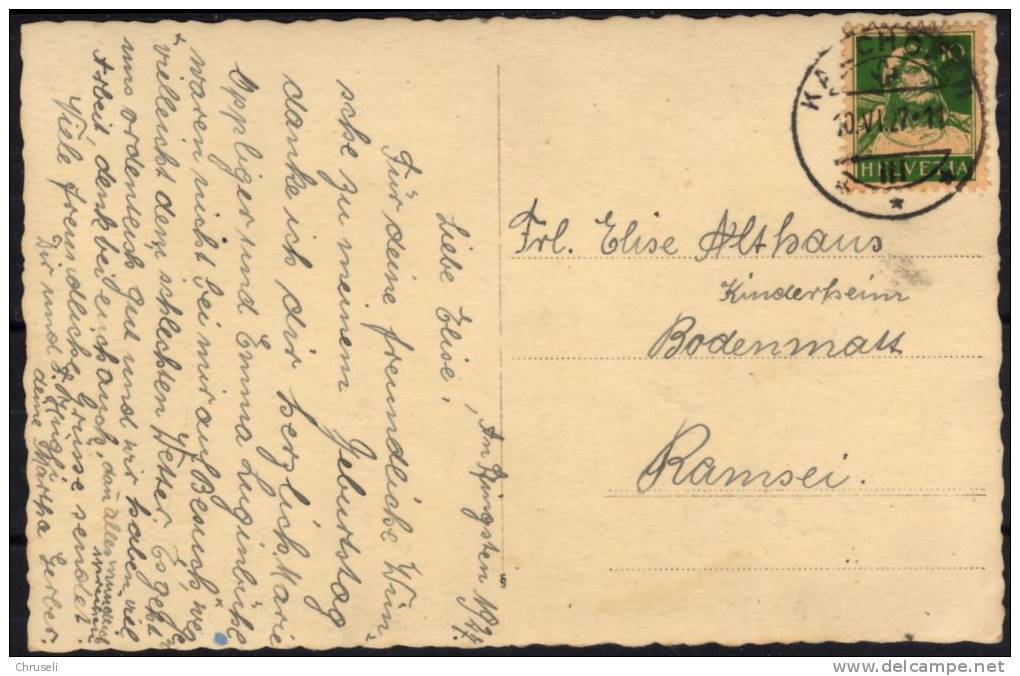 An Pfingsten 1927.
Liebe Elise,
Für deine freundliche Wün-
sche zu meinem Geburtstag
danke ich dir herzlich. Marie
Oppliger und Emma Luginbühl
waren nicht bei mir auf Besuch we
vielleicht dem schlechten Wetter. Es geht
uns ordentlich gut und wir haben viel
Arbeit, denk bei euch auch, dan alles
Viele freundliche Grüsse sendet
Dir und
deine Martha Gerber.
HELVETIA
10
10.VI.27·11
III
Frl. Elise Althaus
Kinderheim
Bodenmatt
Ramsei.
Chruseli
www.delcampe.net